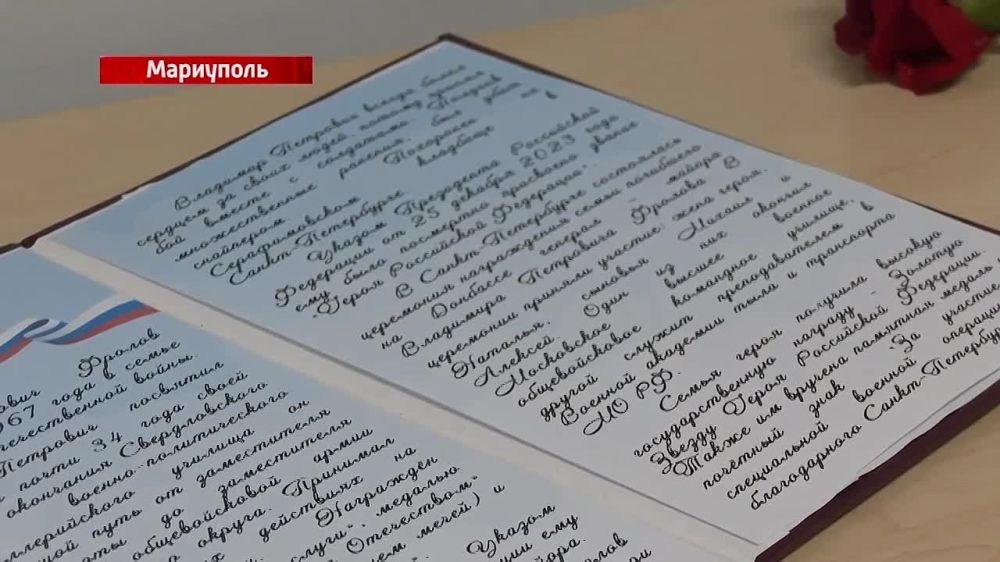 Мариуполь
Владимир Петрович всегда болел
сердцем за своих людей, потому ушёл в
бой вместе с солдатами. Получив
множественные ранения, был убит
снайпером. Похоронен на
Серафимовском кладбище в
Санкт-Петербурге.
Указом Президента Российской
Федерации от 25 декабря 2023 года
ему было посмертно присвоено звание
"Героя Российской Федерации".
В Санкт-Петербурге состоялась
церемония награждения семьи погибшего
на Донбассе генерал - майора
Владимира Петровича Фролова. В
церемонии приняли участие: жена героя,
Наталья, сыновья Михаил и
Алексей. Один из них окончил
Московское высшее военное
общевойсковое командное училище,
другой служит преподавателем в
Военной академии тыла и транспорта
МО РФ.
Семья героя получила высокую
государственную награду - Золотую
Звезду Героя Российской Федерации
Также им вручена памятная медаль и
почётный знак "За участие
специальной военной операции
благодарного Санкт-Петербур
ович Фролов
967 года в семье
ечественной войны.
Петрович посвятил
почти 34 года своей
окончания Свердловского
военно-политического
ллерийского училища он
ной путь от заместителя
оты до заместителя
общевойсковой армии
округа. Принимал
х действиях на
Награждён
слуги", медалью
Отечеством"
ем мечей) и
Указом
ции ему
йора.
лов
ои